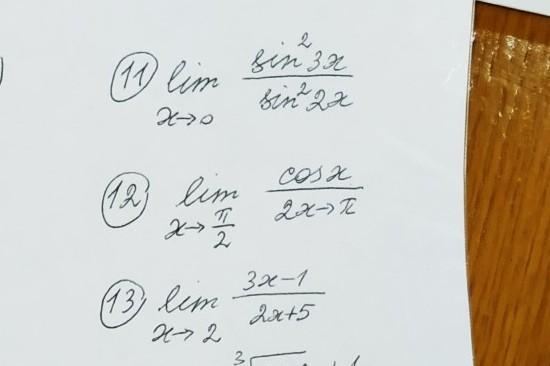 11 lim x→0 sin²3x / sin²2x
12 lim x→π/2 cosx / 2x→π
13 lim x→2 3x-1 / 2x+5